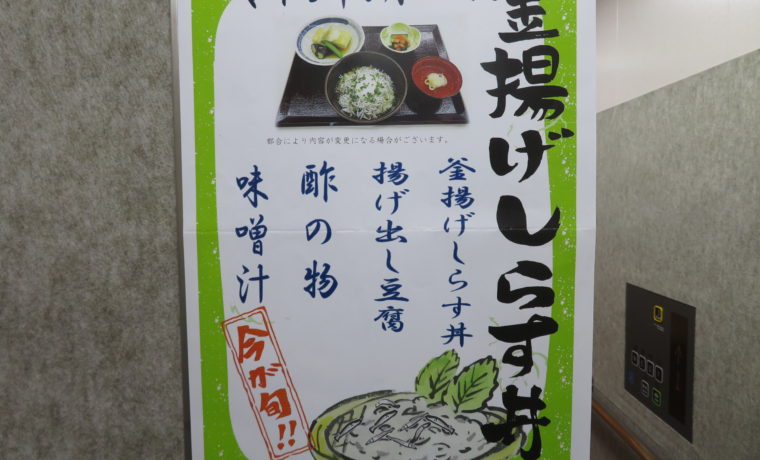 釜揚げしらす丼
都合により内容が変更になる場合がございます。
釜揚げしらす丼
揚げ出し豆腐
酢の物
味噌汁
今が旬!!